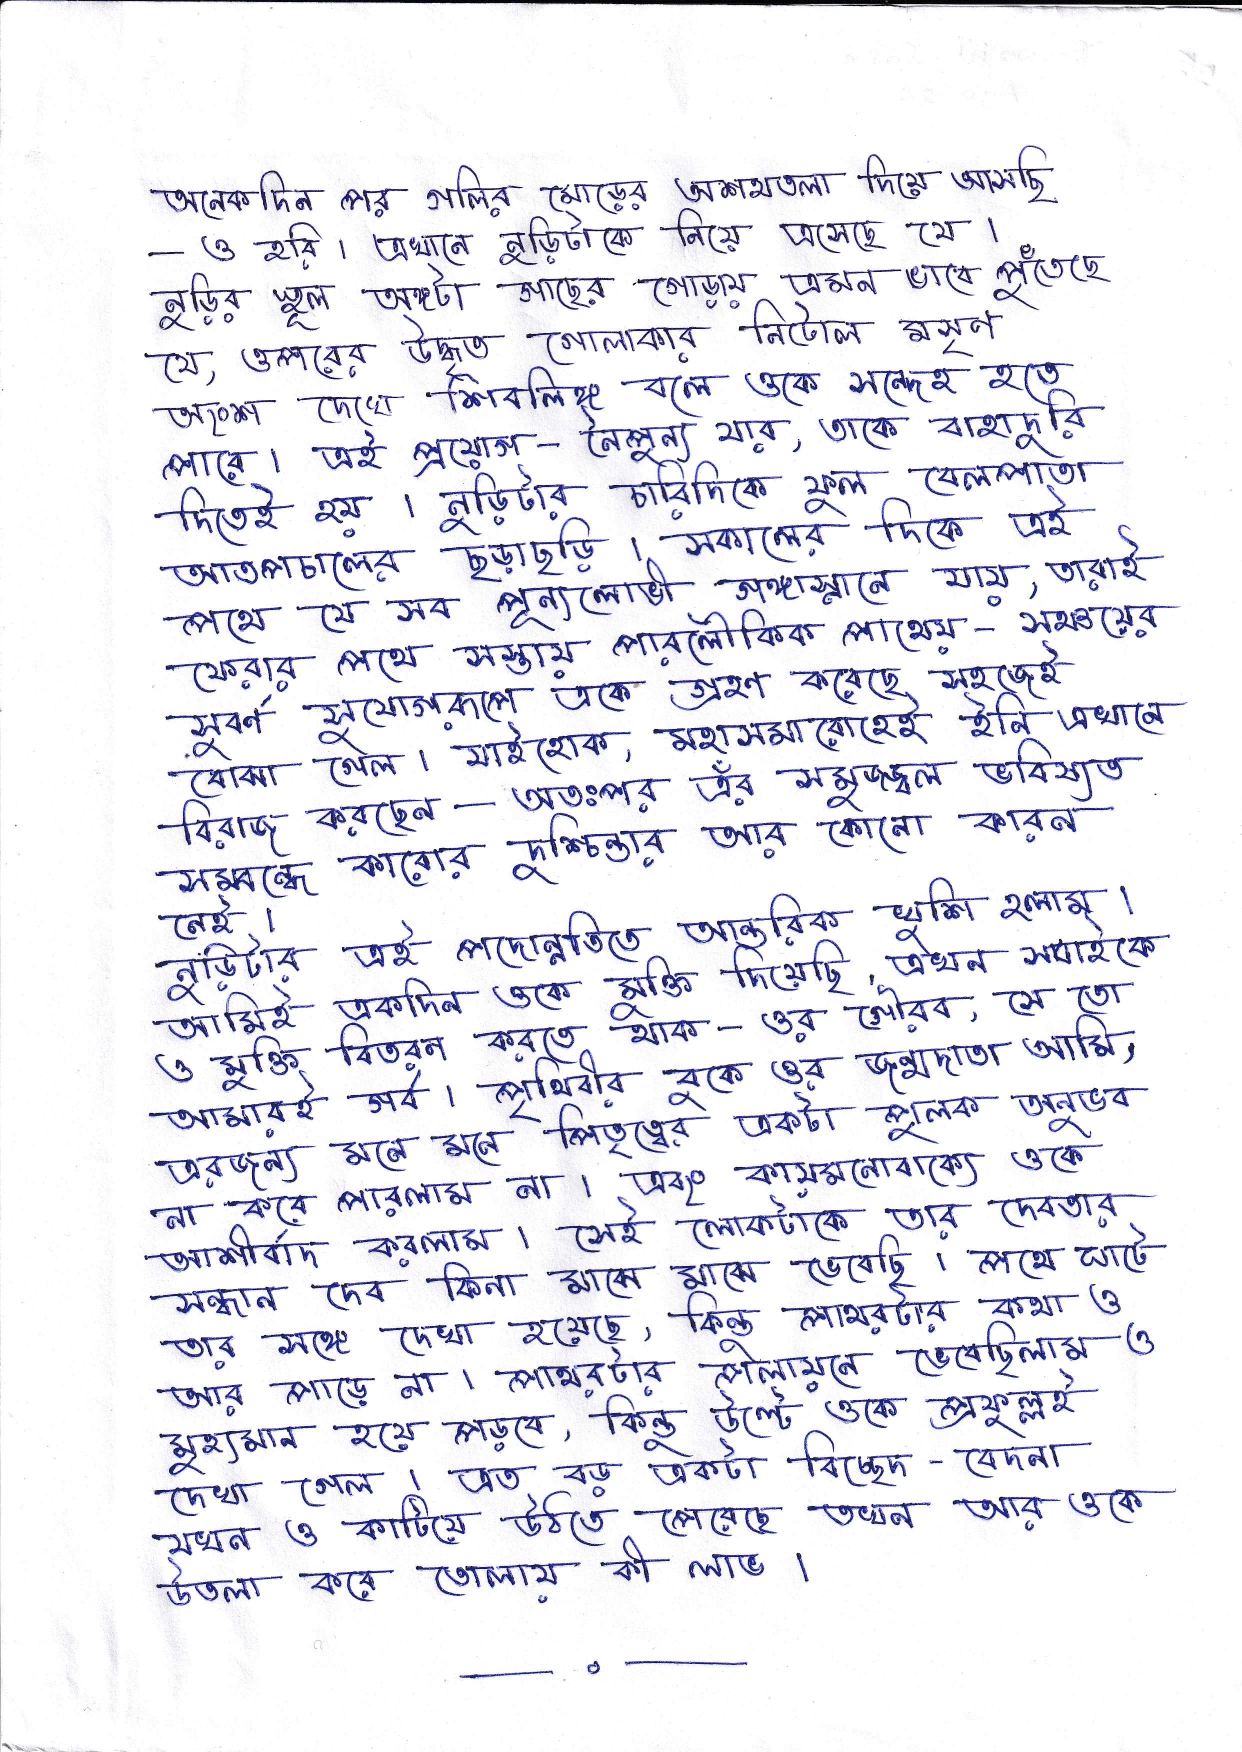 অনেকদিন পর গলির মোড়ের অশথতলা দিয়ে আসছি
— ও হরি। এখানে নুড়িটাকে নিয়ে এসেছে যে।
নুড়ির স্থূল অঙ্গটা গাছের গোড়ায় এমন ভাবে পুঁতেছে
যে, ওপরের উদ্ধৃত গোলাকার নিটোল মসৃণ
অংশ দেখে শিবলিঙ্গ বলে ওকে সন্দেহ হতে
পারে। এই প্রয়োগ – নৈপুন্য যার, তাকে বাহাদুরি
দিতেই হয়। নুড়িটার চারিদিকে ফুল বেলপাতা
আতপচালের ছড়াছড়ি। সকালের দিকে এই
পথে যে সব পূন্যলোভী গঙ্গাস্নানে যায়, তারাই
ফেরার পথে সস্তায় পারলৌকিক পাথেয় – সঞ্চয়ের
সুবর্ণ সুযোগরূপে একে গ্রহণ করেছে সহজেই
বোঝা গেল। যাইহোক, মহাসমারোহেই ইনি এখানে
বিরাজ করছেন – অতঃপর এঁর সমুজ্জ্বল ভবিষ্যত
সম্বন্ধে কারোর দুশ্চিন্তার আর কোনো কারন
নেই।
নুড়িটার এই পদোন্নতিতে আন্তরিক খুশি হলাম।
আমিই একদিন ওকে মুক্তি দিয়েছি, এখন সবাইকে
ও মুক্তি বিতরন করতে থাক – ওর গৌরব, সে তো
আমারই গর্ব। পৃথিবীর বুকে ওর জন্মদাতা আমি,
এরজন্য মনে মনে পিতৃত্বের একটা পুলক অনুভব
না করে পারলাম না। এবং কায়মনোবাক্যে ওকে
আশীর্বাদ করলাম। সেই লোকটাকে তার দেবতার
সন্ধান দেব কিনা মাঝে মাঝে ভেবেছি। পথে ঘাটে
তার সঙ্গে দেখা হয়েছে, কিন্তু পাথরটার কথা ও
আর পাড়ে না। পাথরটার পলায়নে ভেবেছিলাম ও
মুহ্যমান হয়ে পড়বে, কিন্তু উল্টে ওকে প্রফুল্লই
দেখা গেল। এত বড় একটা বিচ্ছেদ – বেদনা
যখন ও কাটিয়ে উঠতে পেরেছে তখন আর ওকে
উতলা করে তোলায় কী লাভ।